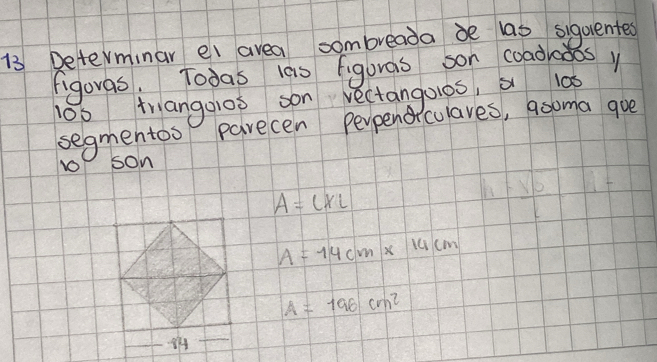 13 Determinar el area sombreada de las siguientes
figuras. Todas las figuras son coadrados y
los triangulos son rectangulos, si los
segmentos parecen perpendiculares, asuma que
lo son
A = LXL
A = 14 cm x 14 cm
A = 196 cm²
14